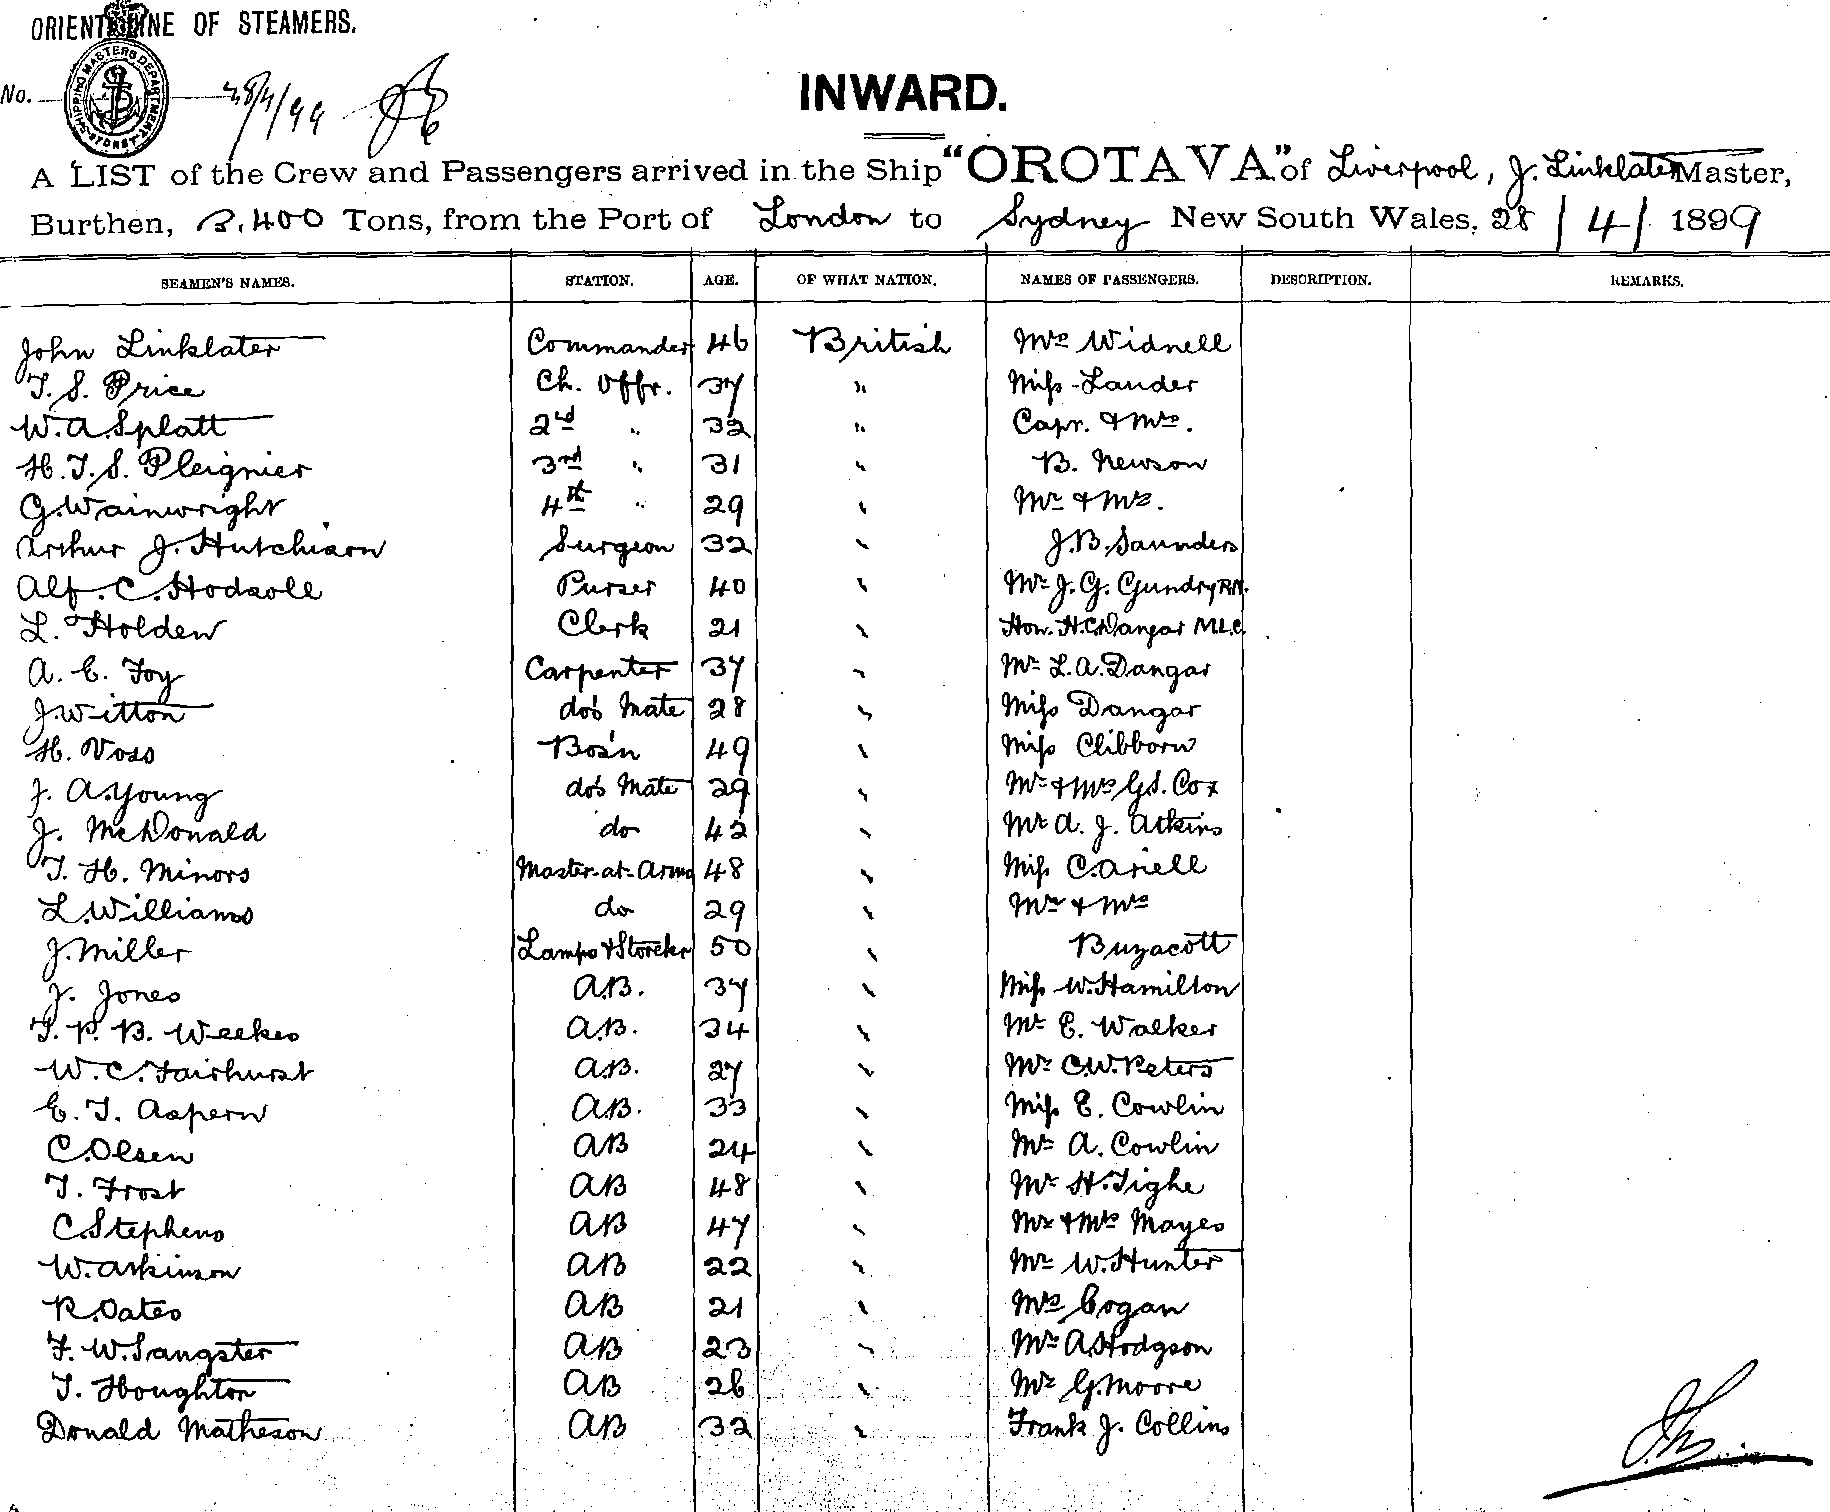 ORIENT LINE OF STEAMERS.
SHIPPING MASTERS DEPARTMENT SYDNEY
No. 28/4/99
INWARD.
A LIST of the Crew and Passengers arrived in the Ship "OROTAVA" of Liverpool, J. Linklater Master,
Burthen, 3,400 Tons, from the Port of London to Sydney New South Wales, 28/4/1899
SEAMEN'S NAMES. STATION. AGE. OF WHAT NATION. NAMES OF PASSENGERS. DESCRIPTION. REMARKS.
John Linklater Commander 46 British Mrs Widnell
T. S. Price Ch. Offr. 37 " Miss Lander
W. A. Splatt 2nd " 32 " Capt. & Mrs.
H. T. S. Pleignier 3rd " 31 " B. Newson
G. Wainwright 4th " 29 " Mr & Mrs.
Arthur J. Hutchison Surgeon 32 " J. B. Saunders
Alf. C. Hodsoll Purser 40 " Mr J. G. Gundry R.N.
L. Holden Clerk 21 " Hon. H. C. Dangar M.L.C.
A. E. Foy Carpenter 37 " Mr L. A. Dangar
J. Witton do's Mate 28 " Miss Dangar
H. Voss Bos'n 49 " Miss Clibborn
J. A. Young do's Mate 29 " Mr & Mrs G. S. Cox
J. McDonald do 42 " Mr A. J. Atkins
T. H. Minors Master-at-Arms 48 " Miss C. Ariell
L. Williams do 29 " Mr & Mrs
J. Miller Lamps & Storekr 50 " Buzacott
J. Jones A.B. 37 " Miss W. Hamilton
T. P. B. Weekes A.B. 34 " Mr E. Walker
W. C. Fairhurst A.B. 27 " Mr C. W. Peters
E. T. Aspern A.B. 33 " Miss E. Cowlin
C. Olsen AB 24 " Mr A. Cowlin
T. Frost AB 48 " Mr H. Tighe
C. Stephens AB 47 " Mr & Mrs Mayes
W. Atkinson AB 22 " Mr W. Hunter
R. Oates AB 21 " Mrs Cogan
F. W. Sangster AB 23 " Mr A. Hodgson
T. Houghton AB 26 " Mr G. Moore
Donald Matheson AB 32 " Frank J. Collins